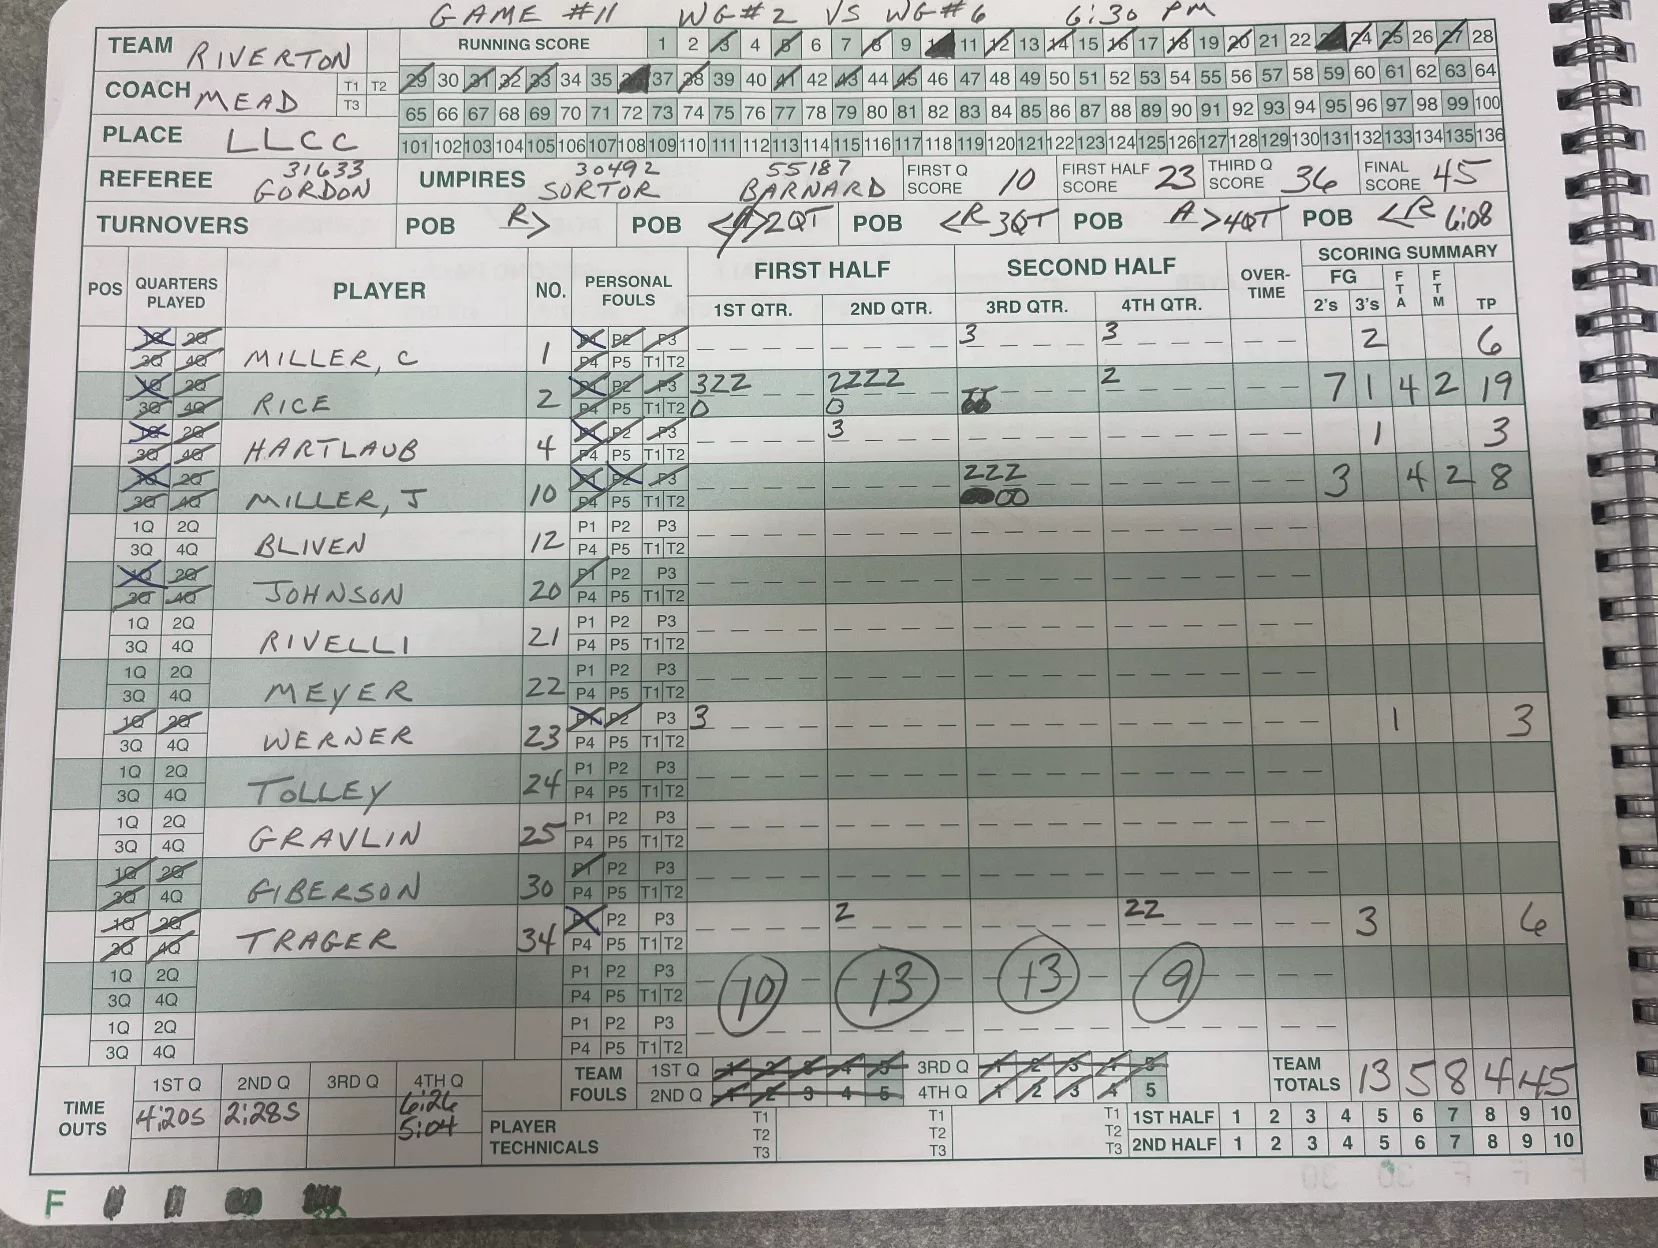 GAME #11 WG#2 VS WG#6 6:30 PM
TEAM RIVERTON RUNNING SCORE 1 2 3 4 5 6 7 8 9 10 11 12 13 14 15 16 17 18 19 20 21 22 23 24 25 26 27 28
COACH MEAD T1 T2 T3 29 30 31 32 33 34 35 36 37 38 39 40 41 42 43 44 45 46 47 48 49 50 51 52 53 54 55 56 57 58 59 60 61 62 63 64
65 66 67 68 69 70 71 72 73 74 75 76 77 78 79 80 81 82 83 84 85 86 87 88 89 90 91 92 93 94 95 96 97 98 99 100
PLACE LLCC 101 102 103 104 105 106 107 108 109 110 111 112 113 114 115 116 117 118 119 120 121 122 123 124 125 126 127 128 129 130 131 132 133 134 135 136
REFEREE 31633 GORDON UMPIRES 30492 SORTOR 55187 BARNARD FIRST Q SCORE 10 FIRST HALF SCORE 23 THIRD Q SCORE 36 FINAL SCORE 45
TURNOVERS POB R> POB <A>2QT POB <R 3QT POB A >4QT POB <R 6:08
POS QUARTERS PLAYED PLAYER NO. PERSONAL FOULS FIRST HALF SECOND HALF OVER-TIME SCORING SUMMARY
1ST QTR. 2ND QTR. 3RD QTR. 4TH QTR. FG 2's 3's FTA FTM TP
1Q 2Q P1 P2 P3 3 3 2 6
3Q 4Q MILLER, C 1 P4 P5 T1 T2
1Q 2Q P1 P2 P3 322 2222 2 7 1 4 2 19
3Q 4Q RICE 2 P4 P5 T1 T2 0 0
1Q 2Q P1 P2 P3 3 1 3
3Q 4Q HARTLAUB 4 P4 P5 T1 T2
1Q 2Q P1 P2 P3 222 3 4 2 8
3Q 4Q MILLER, J 10 P4 P5 T1 T2 00
1Q 2Q P1 P2 P3
3Q 4Q BLIVEN 12 P4 P5 T1 T2
1Q 2Q P1 P2 P3
3Q 4Q JOHNSON 20 P4 P5 T1 T2
1Q 2Q P1 P2 P3
3Q 4Q RIVELLI 21 P4 P5 T1 T2
1Q 2Q P1 P2 P3
3Q 4Q MEYER 22 P4 P5 T1 T2
1Q 2Q P1 P2 P3 3 1 3
3Q 4Q WERNER 23 P4 P5 T1 T2
1Q 2Q P1 P2 P3
3Q 4Q TOLLEY 24 P4 P5 T1 T2
1Q 2Q P1 P2 P3
3Q 4Q GRAVLIN 25 P4 P5 T1 T2
1Q 2Q P1 P2 P3
3Q 4Q GIBERSON 30 P4 P5 T1 T2
1Q 2Q P1 P2 P3 2 22 3 6
3Q 4Q TRAGER 34 P4 P5 T1 T2
1Q 2Q P1 P2 P3 10 13 13 9
3Q 4Q P4 P5 T1 T2
1Q 2Q P1 P2 P3
3Q 4Q P4 P5 T1 T2
TEAM FOULS 1ST Q 1 2 3 4 5 3RD Q 1 2 3 4 5 TEAM TOTALS 13 5 8 4 45
2ND Q 1 2 3 4 5 4TH Q 1 2 3 4 5
TIME OUTS 1ST Q 2ND Q 3RD Q 4TH Q
4:20S 2:28S 6:26
5:04
PLAYER TECHNICALS T1 T2 T3 T1 T2 T3 T1 T2 T3
1ST HALF 1 2 3 4 5 6 7 8 9 10
2ND HALF 1 2 3 4 5 6 7 8 9 10
F